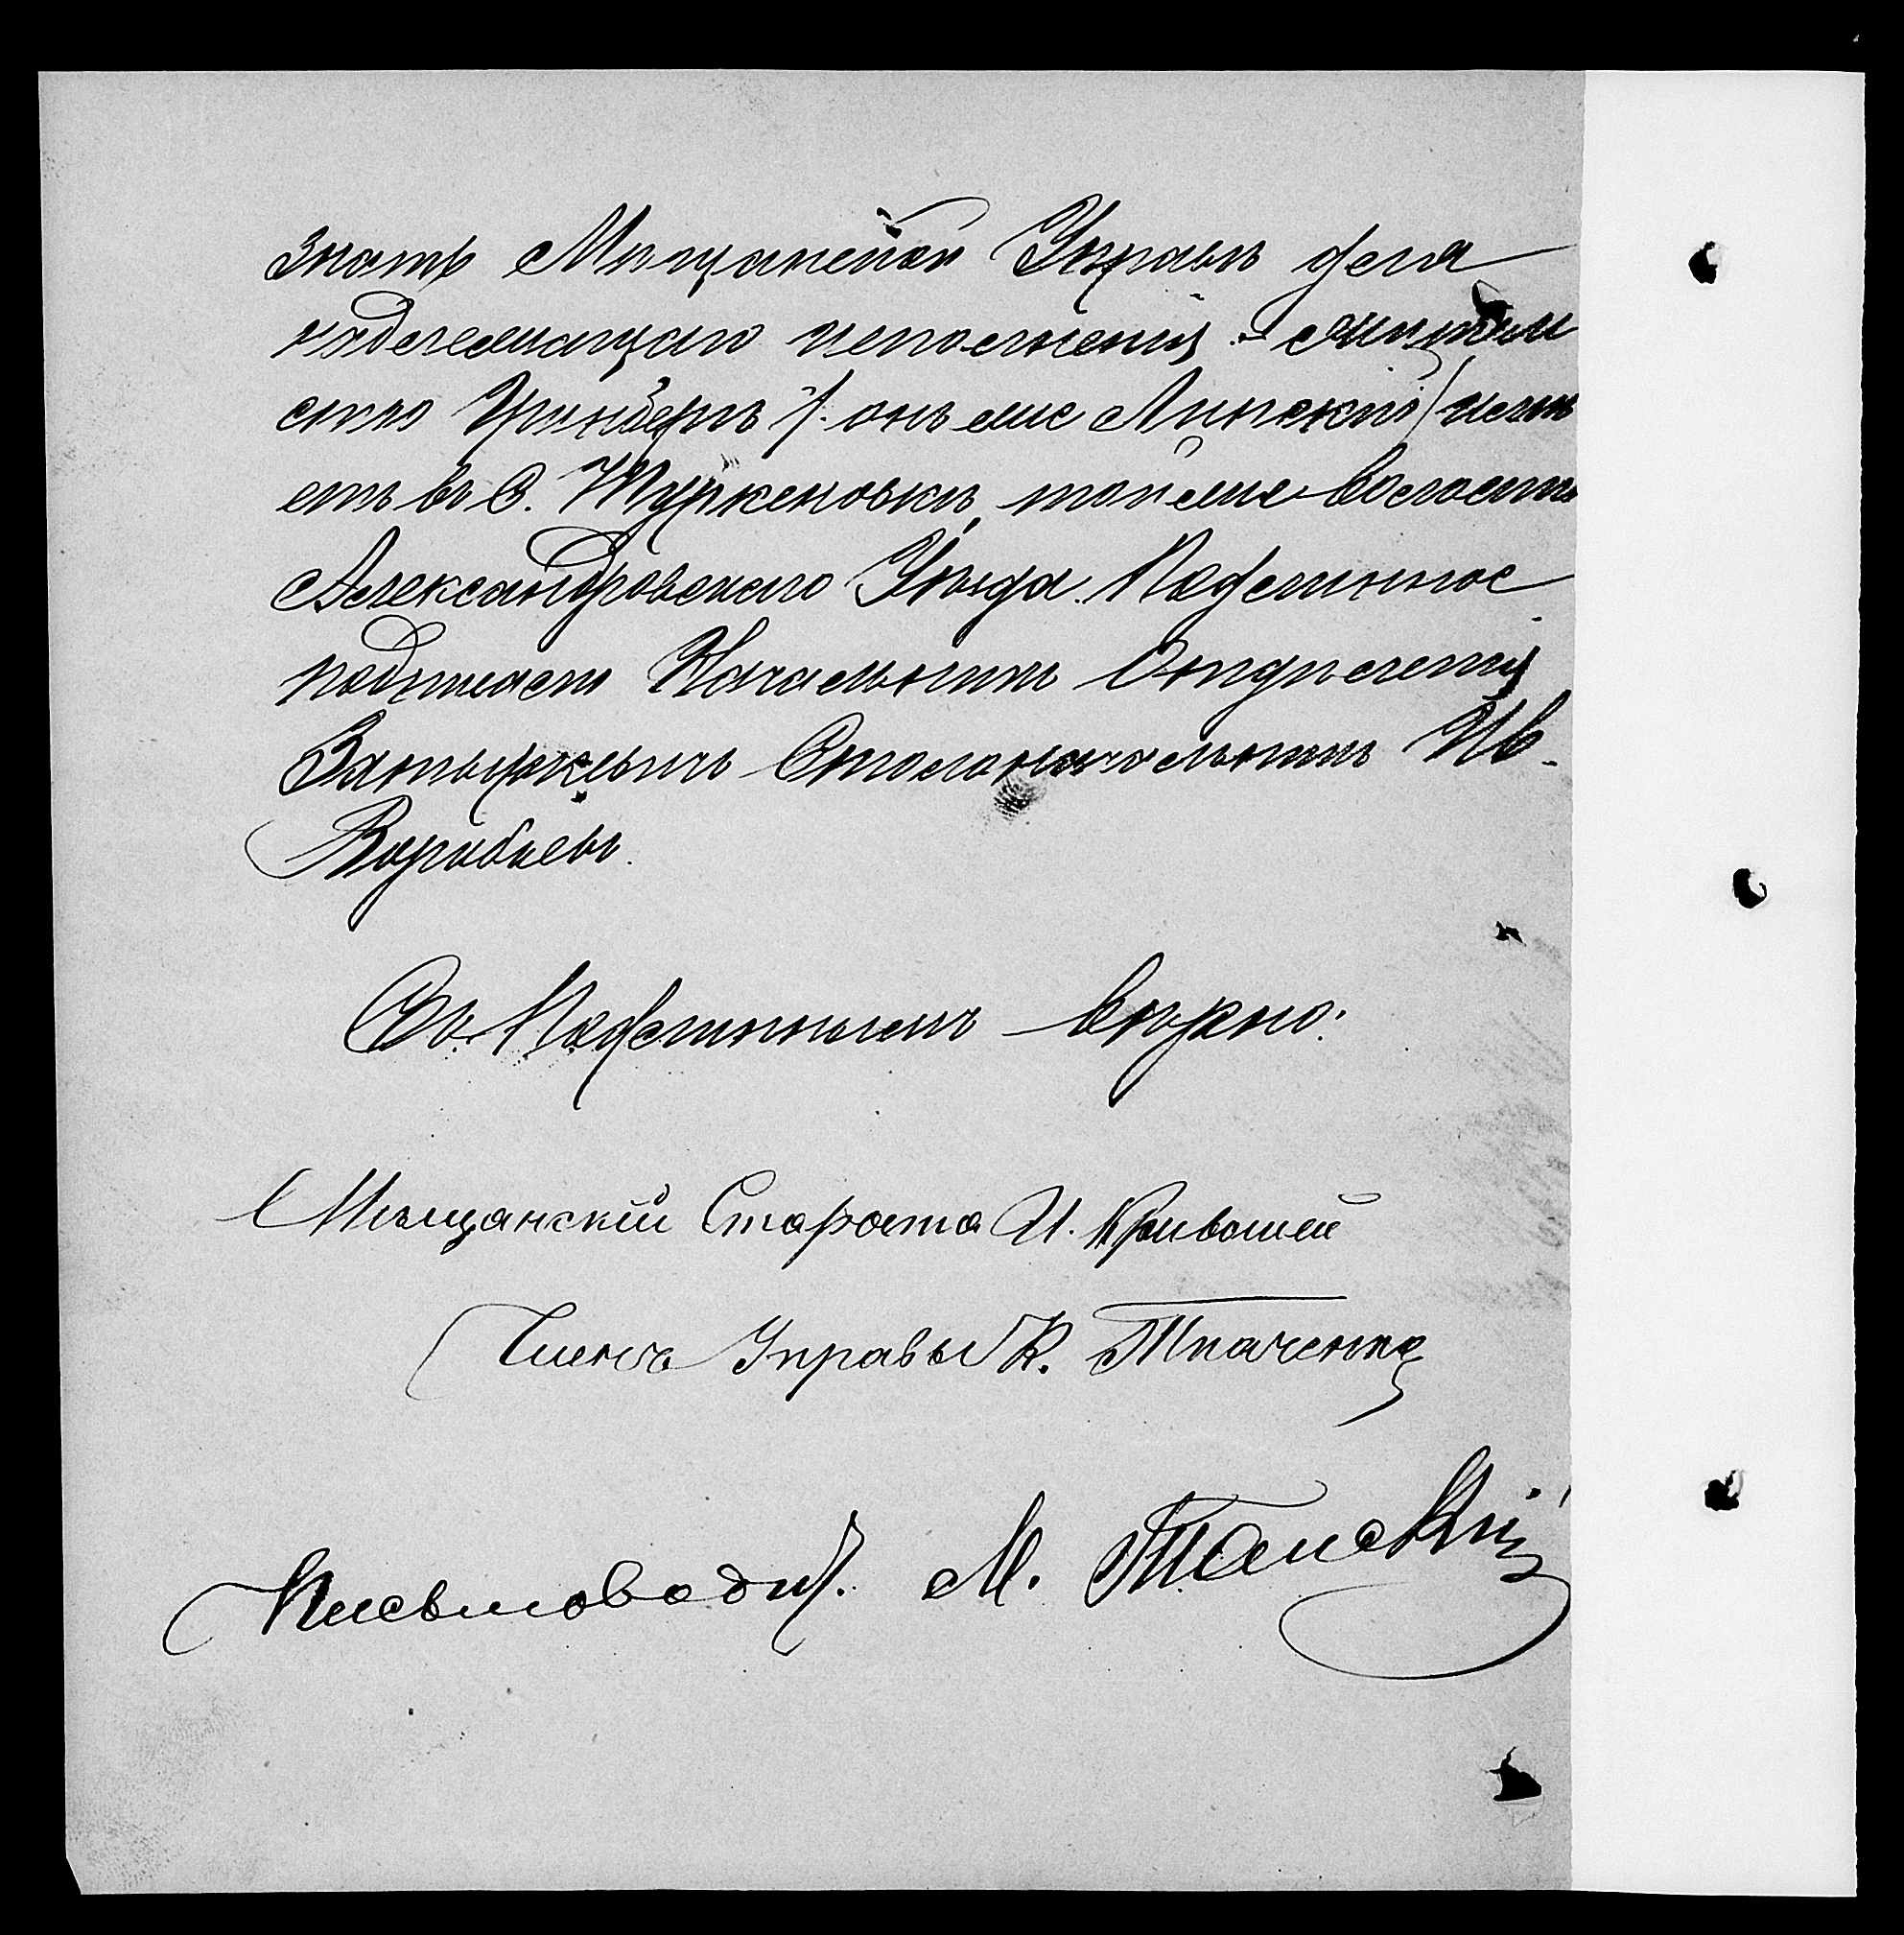 знать Мѣщанской Управѣ для
надлежащаго исполненія. Мѣщан
ство Гринберъ /: онъ же Липскій/ живъ
етъ въ с. Туркеновкѣ, той же волости
Александровскаго Уѣзда. Подлинное
подписалъ Начальникъ Отдѣленія
Столоначальникъ Ив.
Воробьевъ.
Съ Подлиннымъ вѣрно:
Мѣщанскій Староста И. Кривошей
Членъ Управы К. Ткаченко
Письмовод. М.